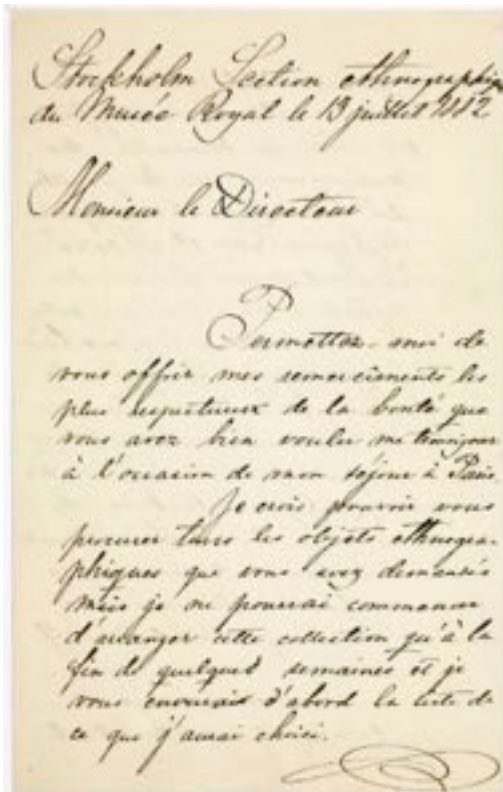 Stockholm Section ethnographique
du Musée Royal le 13 juillet 1882
Monsieur le Directeur
Permettez-moi de
vous offrir mes remerciements les
plus respectueux de la bonté que
vous avez bien voulu me témoigner
à l'occasion de mon séjour à Paris.
Je crois pouvoir vous
procurer tous les objets ethnogra-
phiques que vous avez demandés
mais je ne pourrai commencer
d'arranger cette collection qu'à la
fin de quelques semaines et je
vous enverrais d'abord la liste de
ce que j'aurai choisi.